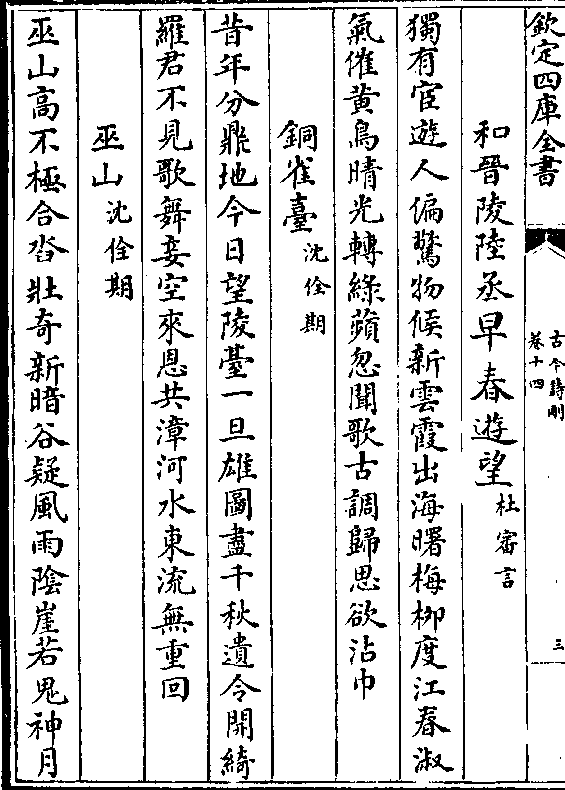 欽定四庫全書
古今詩刪
卷十四
三
和晉陵陸丞早春遊望 杜審言
獨有宦遊人偏驚物候新雲霞出海曙梅柳度江春淑
氣催黄鳥晴光轉綠蘋忽聞歌古調歸思欲沾巾
銅雀臺 沈佺期
昔年分鼎地今日望陵臺一旦雄圖盡千秋遺令開綺
羅君不見歌舞妾空來恩共漳河水東流無重回
巫山 沈佺期
巫山高不極合沓壯奇新暗谷疑風雨陰崖若鬼神月